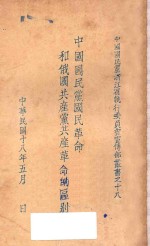 中國國民黨浙江省執行委員會宣傳部叢書之十八
中國國民黨國民革命
和俄國共產黨共產革命的區別
中華民國十八年五月 日